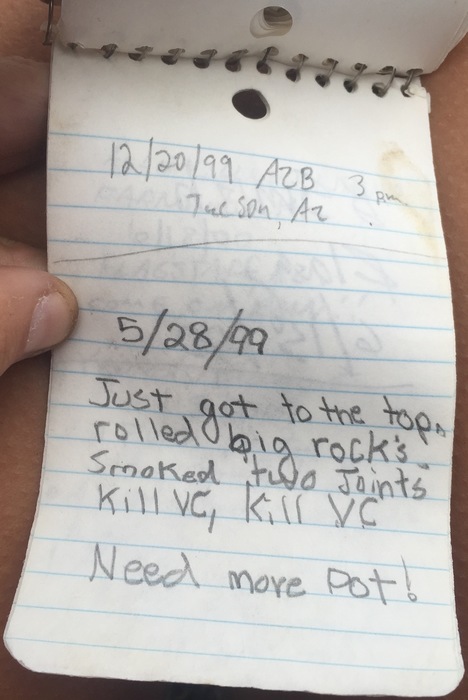 12/20/99 AZB 3 pm
Tucson, AZ
5/28/99
Just got to the top.
rolled big rock's.
Smoked two Joints
Kill VC, Kill VC
Need more Pot!